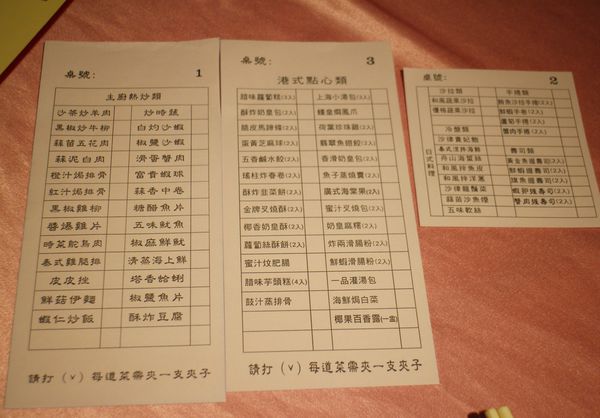 桌號: 1
主廚熱炒類
沙茶炒羊肉 炒時蔬
黑椒炒牛柳 白灼沙蝦
蒜苗五花肉 椒鹽沙蝦
蒜泥白肉 滑蛋蟹肉
橙汁焗排骨 富貴蝦球
紅汁焗排骨 蒜香中卷
黑椒雞柳 糖醋魚片
醬爆雞片 五味魷魚
時菜鴕鳥肉 椒麻鮮魷
泰式雞腿排 清蒸海上鮮
皮皮挫 塔香蛤蜊
鮮菇伊麵 椒鹽魚片
蝦仁炒飯 酥炸豆腐
請打 (v) 每道菜需夾一支夾子
桌號: 3
港式點心類
腊味蘿蔔糕(3人) 上海小湯包(2人)
酥炸奶皇包(2人) 鐘皇燜鳳爪
脆皮馬蹄條(2人) 荷葉珍珠雞(2人)
蛋黃芝麻球(2人) 翡翠魚翅餃(2人)
五香鹹水餃(2人) 香滑奶皇包(2人)
瑤柱炸春卷(2人) 魚子蒸燒賣(2人)
酥炸韭菜餅(2人) 廣式海棠果(2人)
金牌叉燒酥(2人) 蜜汁叉燒包(2人)
椰香奶皇酥(2人) 奶皇麻糬(2人)
蘿蔔絲酥餅(2人) 炸兩滑腸粉(2人)
蜜汁炆肥腸 鮮蝦滑腸粉(2人)
腊味芋頭糕(4人) 一品灌湯包
鼓汁蒸排骨 海鮮焗白菜
椰果百香露(一盅)
請打 (v) 每道菜需夾一支夾子
桌號: 2
日式料理
沙拉類 手捲類
和風蔬果沙拉 鮪魚沙拉手捲(2人)
優格蔬果沙拉 鮮蝦手卷(2人)
蘆筍手卷(2人)
冷盤類 蟹肉手捲(2人)
沙律貴妃鮑
泰式涼拌海鮮 壽司類
舟山海蜇絲 黃金魚翅壽司(2人)
和風拌魚皮 鮮蝦握壽司(2人)
和風拌洋蔥 旗魚握壽司(2人)
沙律龍鬚菜 蝦卵握壽司(2人)
蒜苗沙魚煙 蟹肉握壽司(2人)
五味軟絲